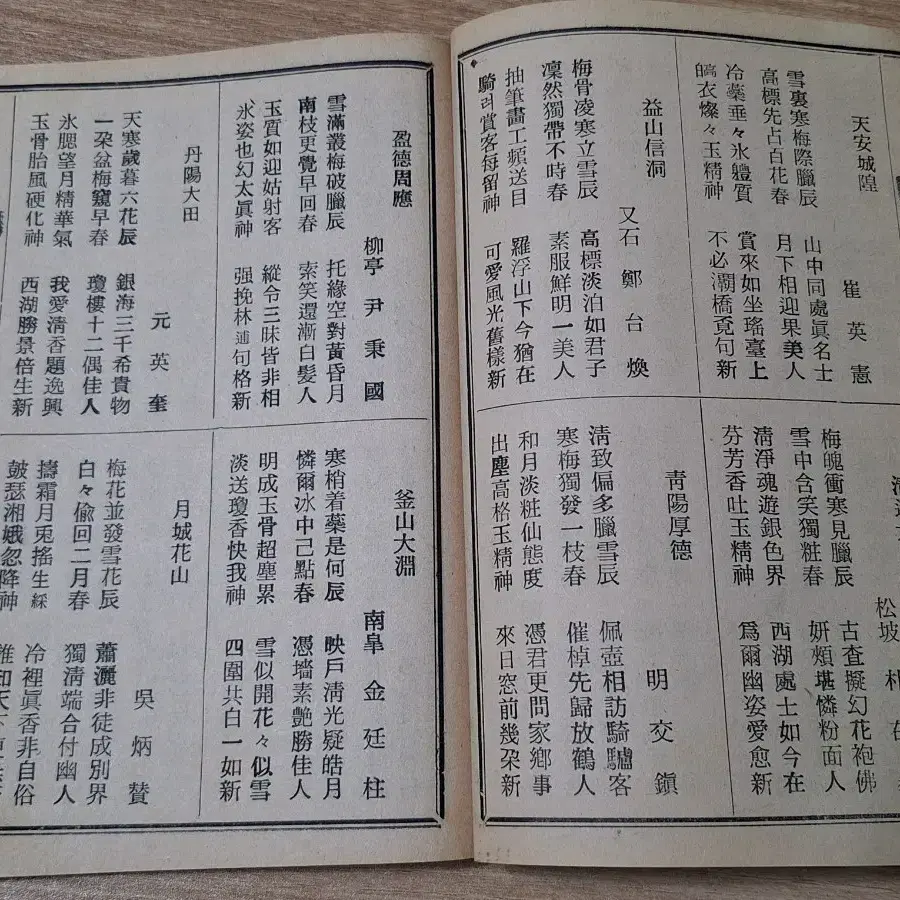 天安城隍
崔英憲
雪裏寒梅際臘辰
高標先占百花春
冷蘂垂々氷體質
皜衣燦々玉精神
山中同處眞名士
月下相迎果美人
賞來如坐瑤臺上
不必灞橋覓句新
益山信洞
又石 鄭台煥
梅骨凌寒立雪辰
凜然獨帶不時春
抽筆畵工頻送目
騎驢賞客每留神
高標淡泊如君子
素服鮮明一美人
羅浮山下今猶在
可愛風光舊樣新
松坡 朴在
梅魄衝寒見臘辰
雪中含笑獨粧春
淸淨魂遊銀色界
芬芳香吐玉精神
古査擬幻花袍佛
姸頰堪憐粉面人
西湖處士如今在
爲爾幽姿愛愈新
靑陽厚德
明交鎭
淸致偏多臘雪辰
寒梅獨發一枝春
和月淡粧仙態度
出塵高格玉精神
佩壺相訪騎驢客
催棹先歸放鶴人
憑君更問家鄕事
來日窓前幾朶新
盈德周應
柳亭 尹秉國
雪滿叢梅破臘辰
南枝更覺早回春
玉質如迎姑射客
氷姿也幻太眞神
托緣空對黃昏月
索笑還漸白髮人
縱令三昧皆非相
强挽林逋句格新
丹陽大田
元英奎
天寒歲暮六花辰
一朶盆梅窺早春
氷腮望月精華氣
玉骨胎風硬化神
銀海三千希貴物
瓊樓十二偶佳人
我愛淸香題逸興
西湖勝景倍生新
釜山大淵
南皐 金廷柱
寒梢着蘂是何辰
憐爾冰中己點春
明成玉骨超塵累
淡送瓊香快我神
映戶淸光疑皓月
憑墻素艶勝佳人
雪似開花々似雪
四圍共白一如新
月城花山
吳炳賛
梅花並發雪花辰
白々偸回二月春
擣霜月兎搖生綵
皷瑟湘娥忽降神
蕭灑非徒成別界
獨淸端合付幽人
冷裡眞香非自俗
知天下